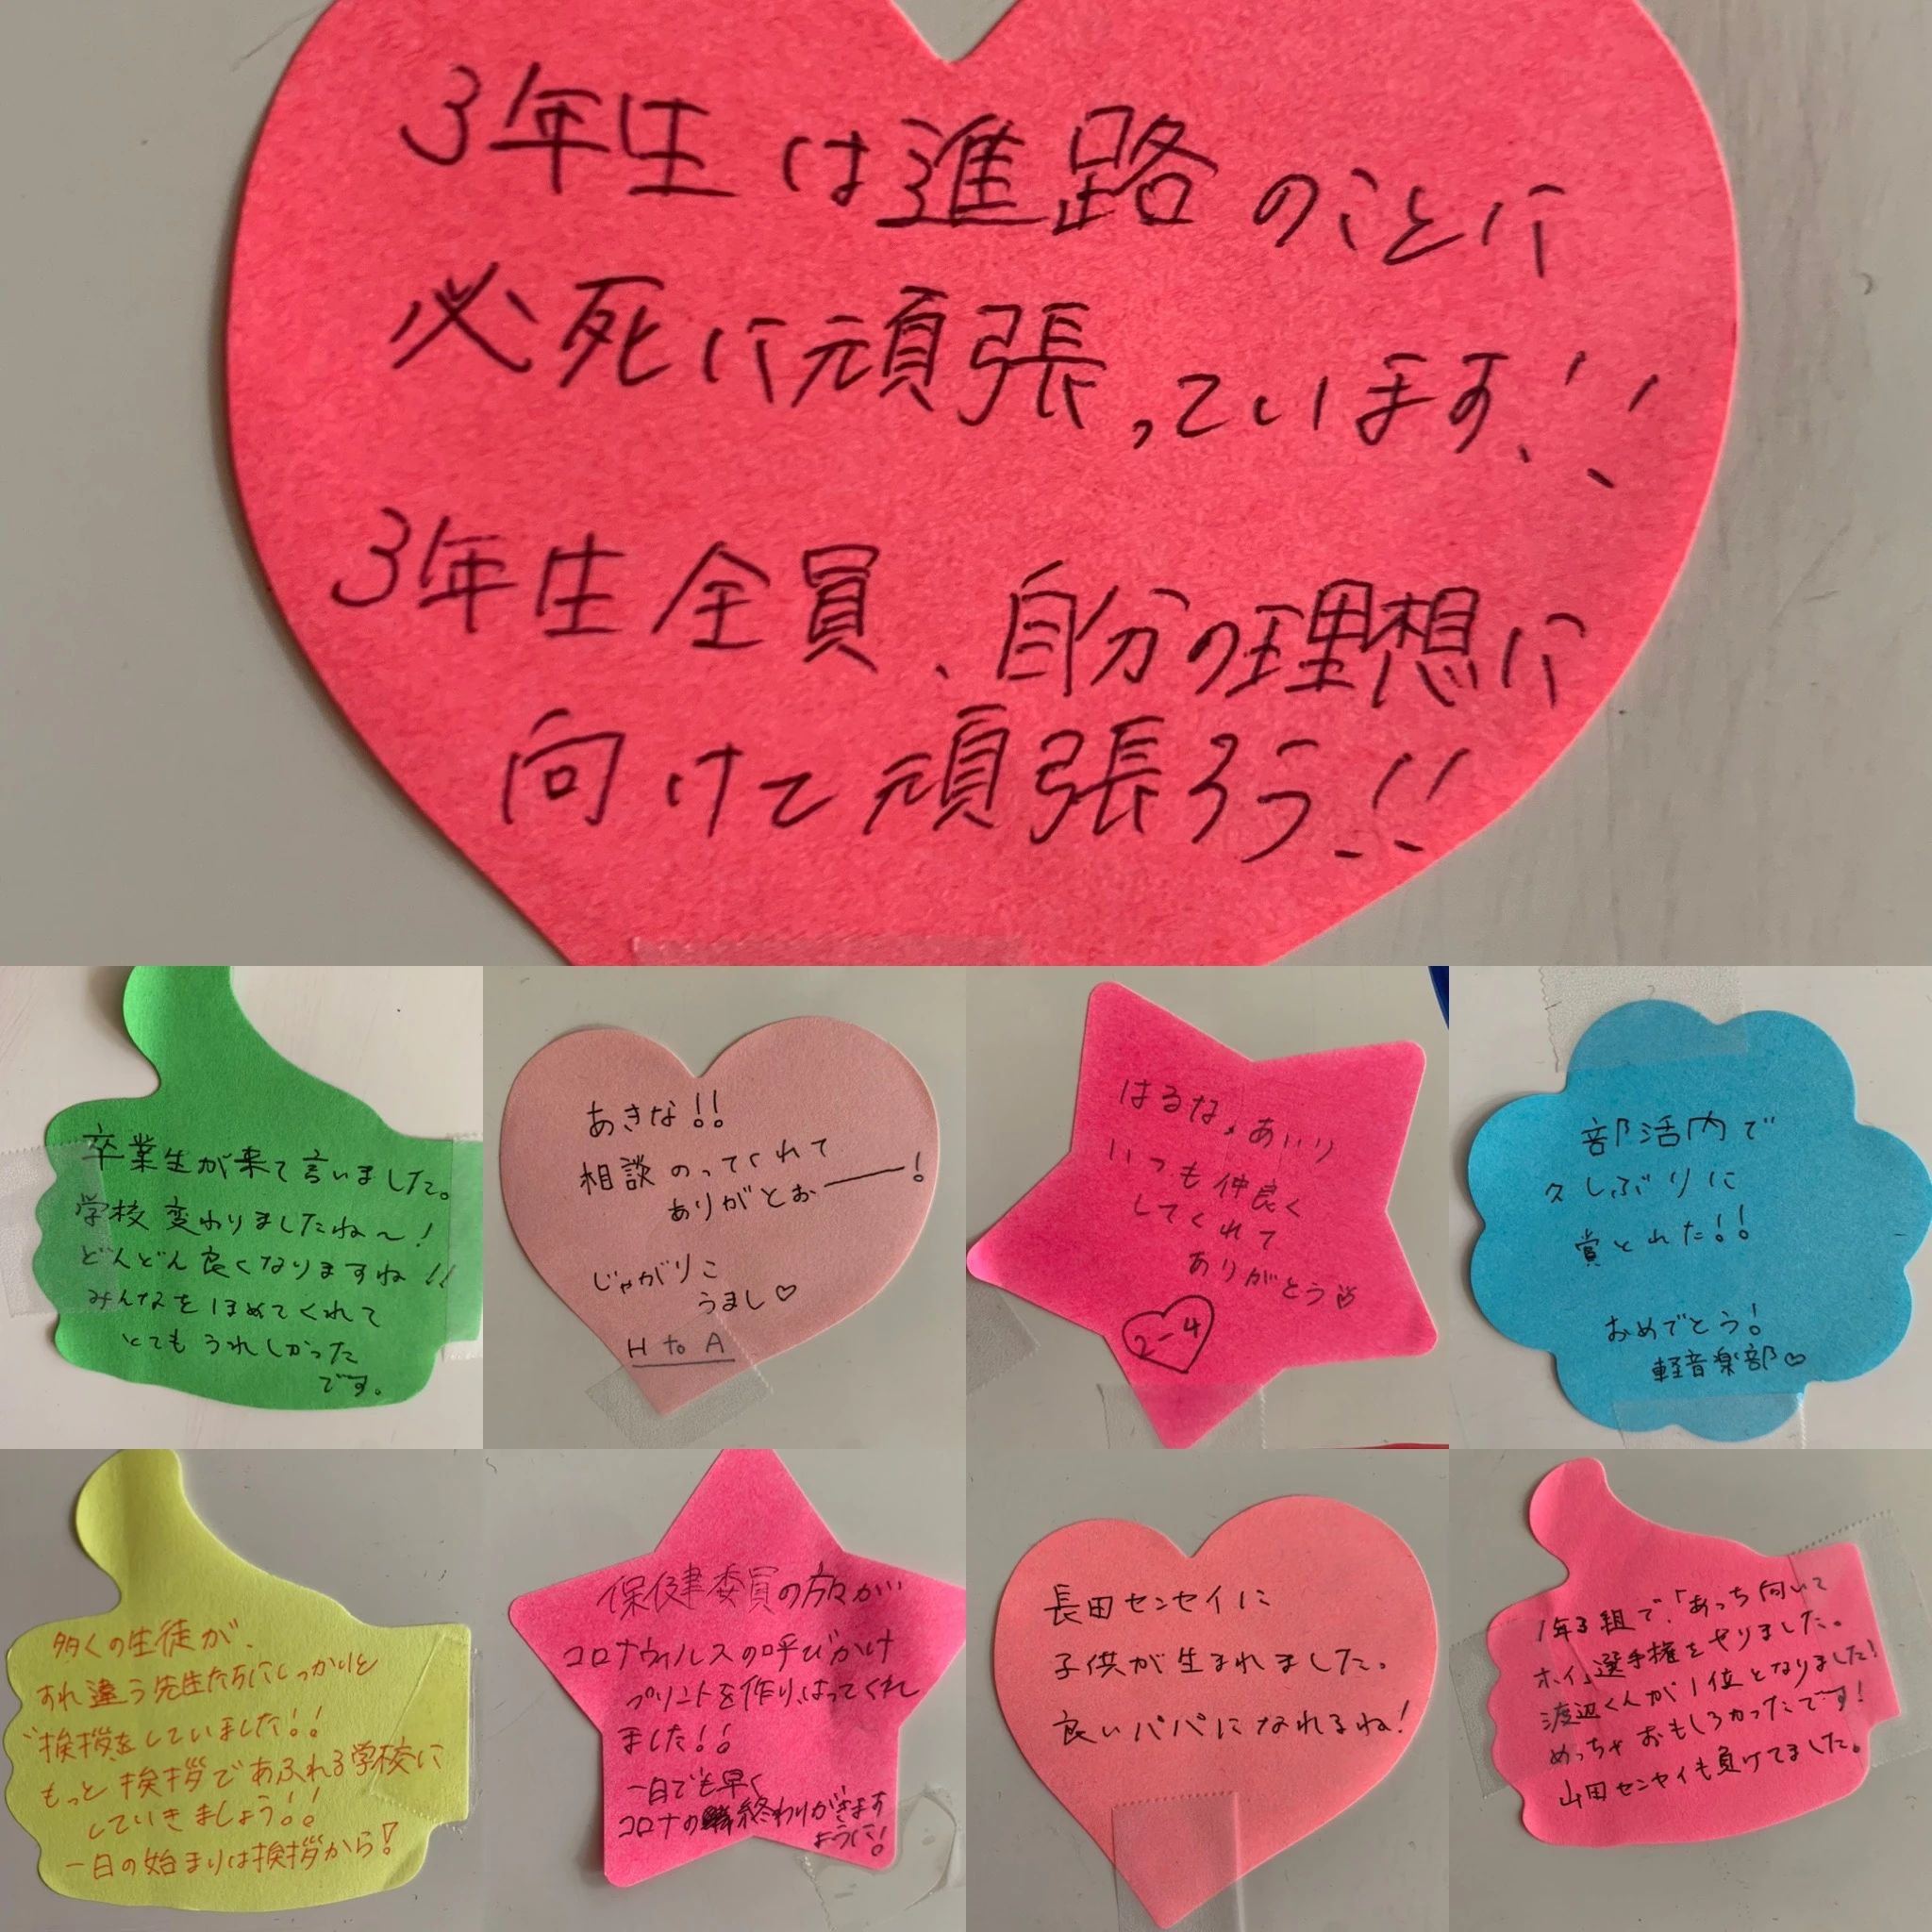 3年生は進路のことに
必死に頑張っています!!
3年生全員、自分の理想に
向けて頑張ろう!!
卒業生が来て言いました。
学校変わりましたね~!
どんどん良くなりますね!!
みんなをほめてくれて
とてもうれしかった
です。
あきな!!
相談のってくれて
ありがとぉー!
じゃがりこ
うまし♡
H to A
はるな、あいり
いつも仲良く
してくれて
ありがとう
2-4
部活内で
久しぶりに
賞とれた!!
おめでとう!
軽音楽部♡
多くの生徒が、
すれ違う先生たちにしっかりと
挨拶をしていました!!
もっと挨拶であふれる学校に
していきましょう!!
一日の始まりは挨拶から!
保健委員の方々が
コロナウィルスの呼びかけ
プリントを作り、はってくれ
ました!!
一日でも早く
コロナの終わりがきます
ように!
長田センセイに
子供が生まれました。
良いパパになれるね!
1年3組で、「あっち向いて
ホイ」選手権をやりました。
渡辺くんが1位となりました!
めっちゃおもしろかったです!
山田センセイも負けてました。